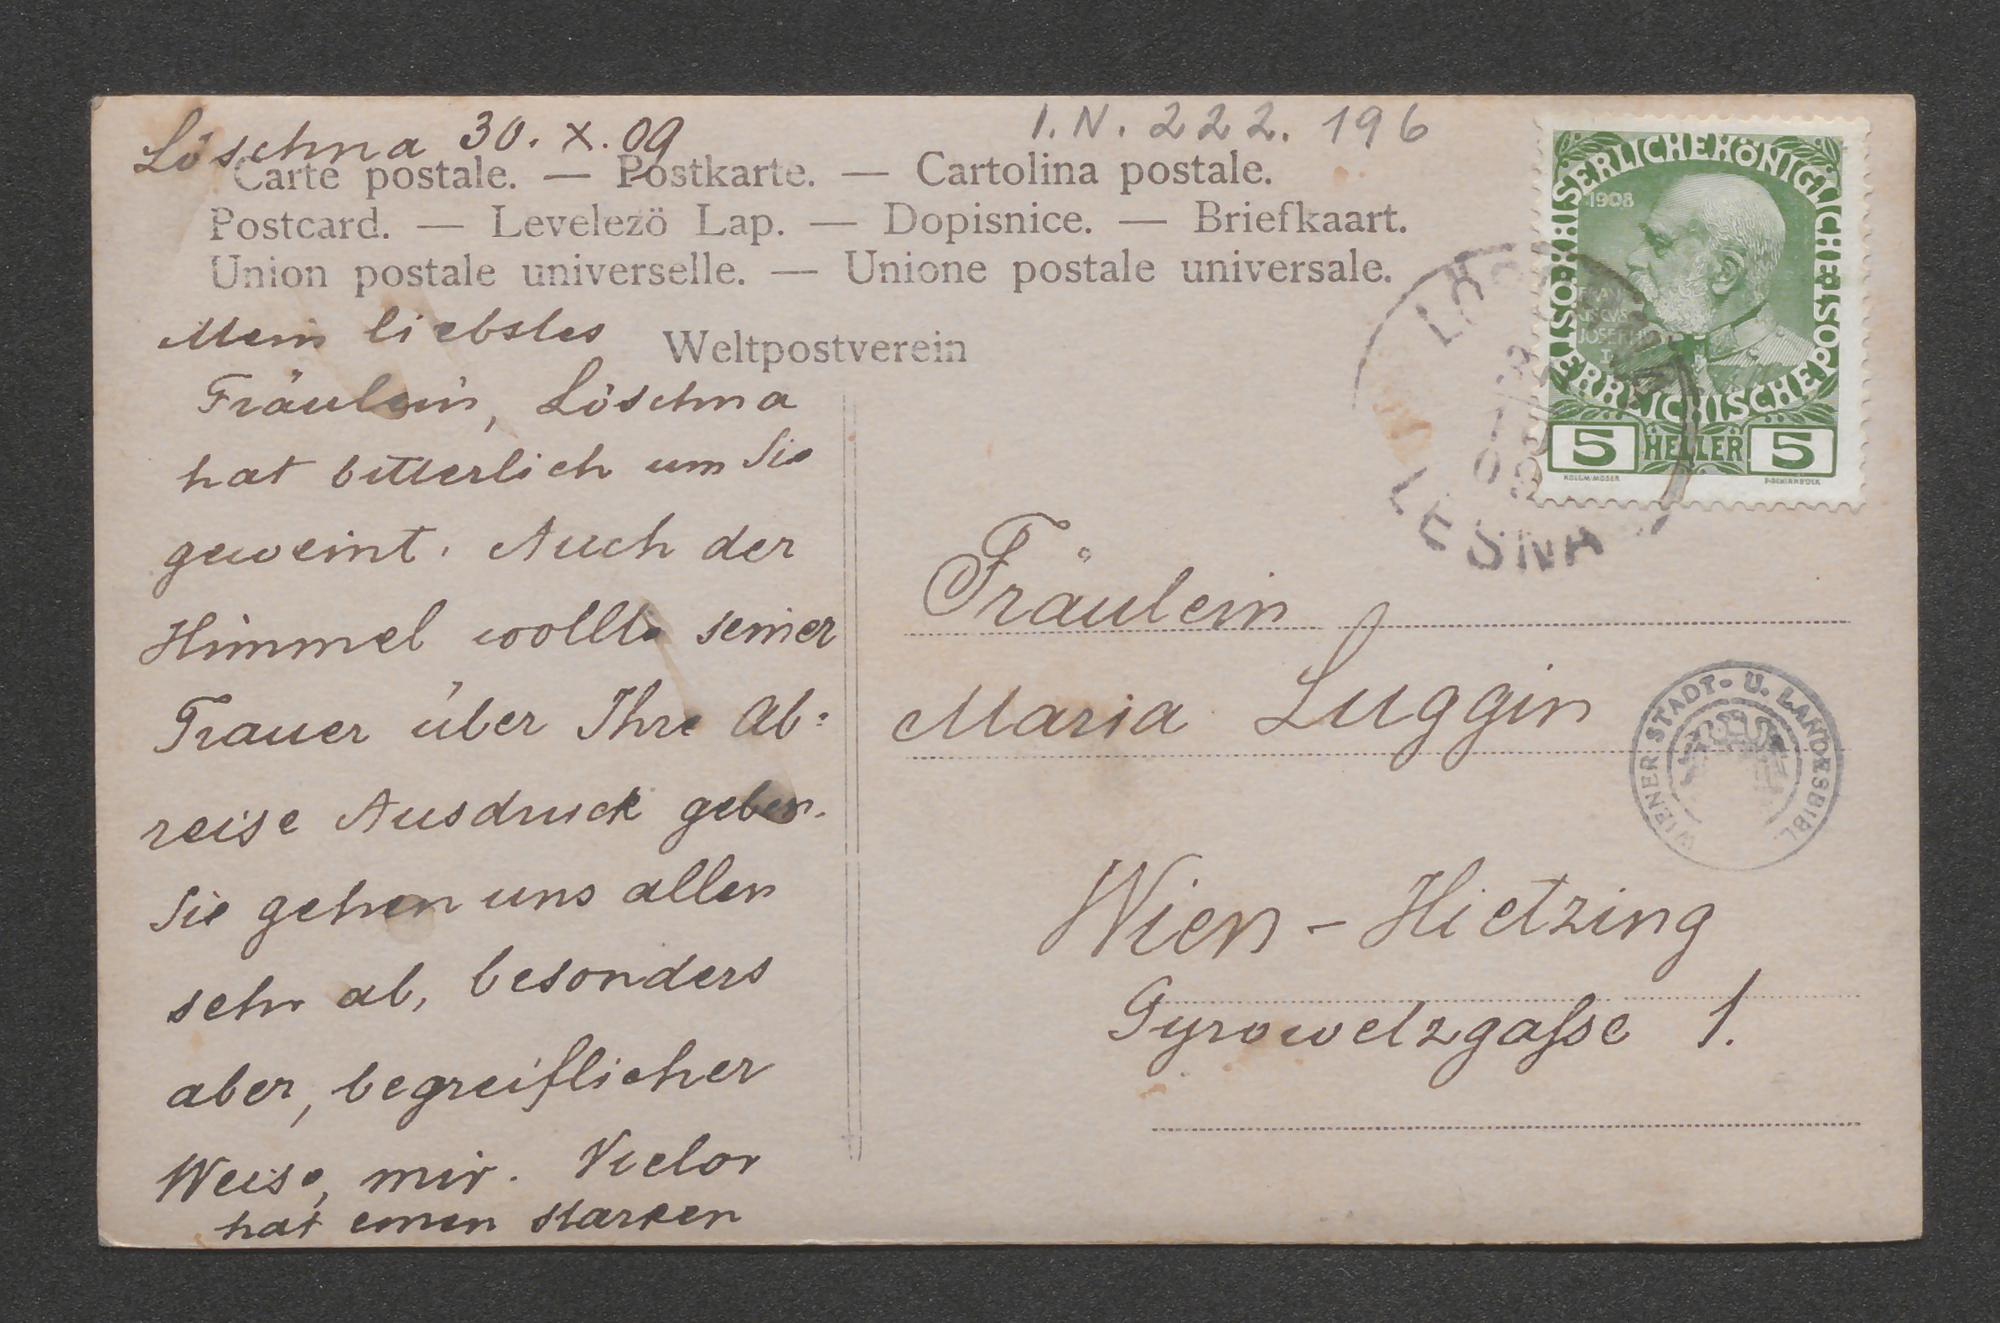 Löschna 30. X. 09
I. N. 222. 196
Carte postale. — Postkarte. — Cartolina postale.
Postcard. — Levelezö Lap. — Dopisnice. — Briefkaart.
Union postale universelle. — Unione postale universale.
Weltpostverein
Mein liebstes
Fräulein, Löschna
hat bitterlich um Sie
geweint. Auch der
Himmel wollte seiner
Trauer über Ihre Ab=
reise Ausdruck geben.
Sie gehen uns allen
sehr ab, besonders
aber, begreiflicher
Weise, mir. Victor
hat einen starken
KAISERLICHE KÖNIGLICHE ÖSTERREICHISCHE POST
1908
FRAN
CISCVS
JOSEPH
I
5 HELLER 5
KOLOM. MOSER
F. SCHIRNBÖCK
LESNA
Fräulein
Maria Luggin
WIENER STADT- U. LANDESBIBL.
Wien - Hietzing
Gyrowetzgaſse 1.